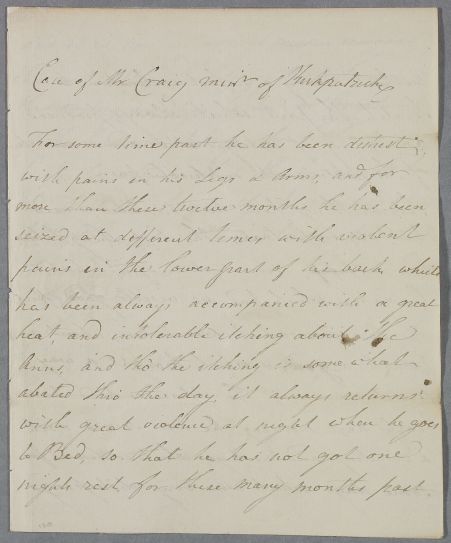 Case of Mr Craig minr of Kirkpatrick
For some time past he has been distrest
with pains in his Legs & Arms, and for
more than these twelve months he has been
seized at different times with violent
pains in the lower part of his back which
has been always accompanied with a great
heat, and intolerable itching about the
Anus, and tho the itching is some what
abated thro the day, it always returns
with great violence at night when he goes
to Bed, so that he has not got one
nights rest for these many months past.